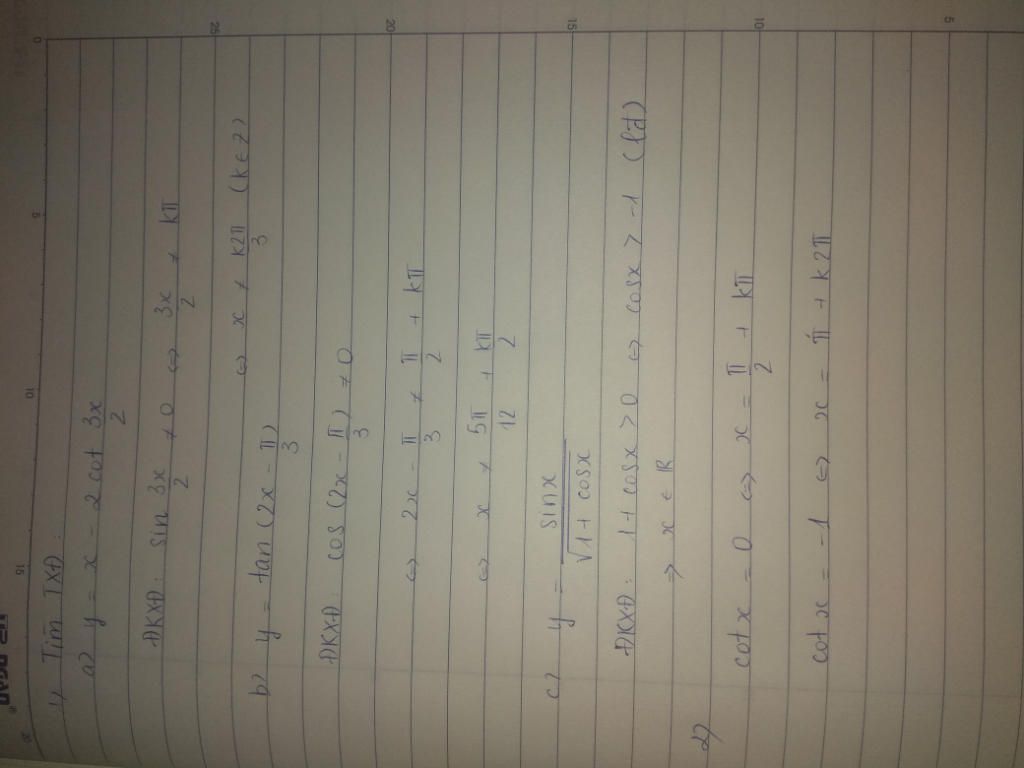 1) Tìm TXĐ:
a) y = x - 2 cot 3x/2
ĐKXĐ: sin 3x/2 ≠ 0 ⇔ 3x/2 ≠ kπ
⇔ x ≠ k2π/3 (k∈Z)
b) y = tan (2x - π/3)
ĐKXĐ: cos (2x - π/3) ≠ 0
⇔ 2x - π/3 ≠ π/2 + kπ
⇔ x ≠ 5π/12 + kπ/2
c) y = sinx/√(1 + cosx)
ĐKXĐ: 1 + cosx > 0 ⇔ cosx > -1 (lđ)
⇒ x ∈ R
2)
cotx = 0 ⇔ x = π/2 + kπ
cotx = -1 ⇔ x = π + k2π
5
10
15
20
25
0
5
10
15
20